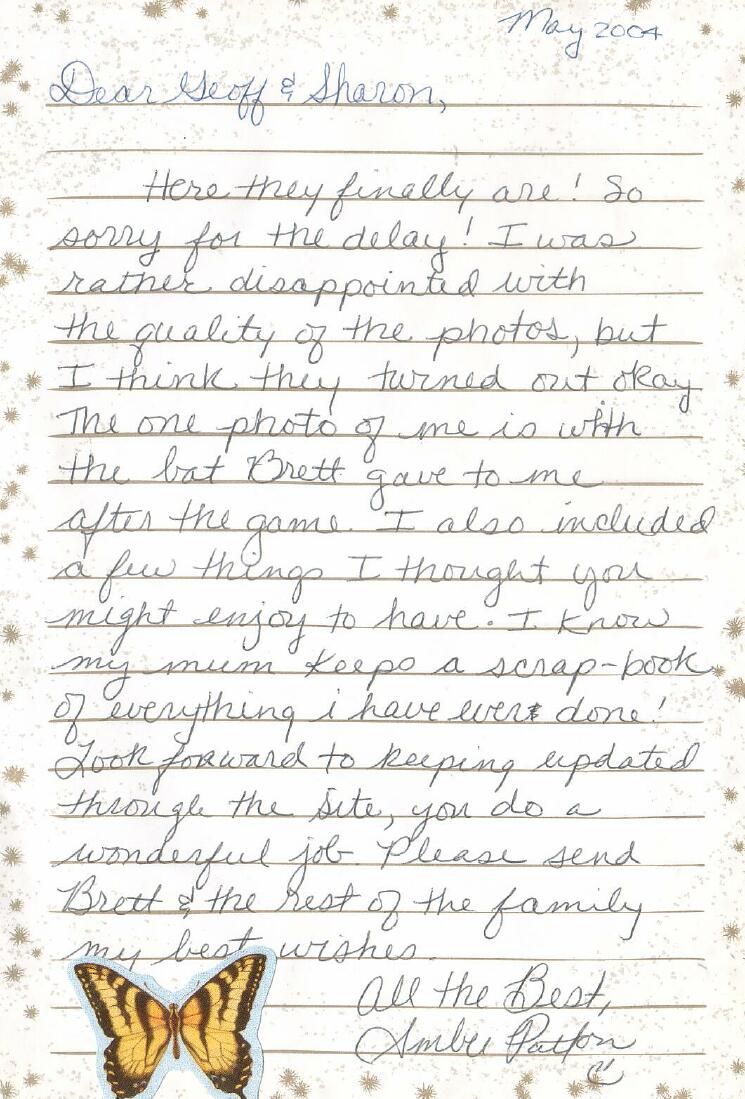 May 2004
Dear Geoff & Sharon,
Here they finally are! So
sorry for the delay! I was
rather disappointed with
the quality of the photos, but
I think they turned out okay
The one photo of me is with
the bat Brett gave to me
after the game. I also included
a few things I thought you
might enjoy to have. I know
my mum keeps a scrap-book
of everything i have ever done!
Look forward to keeping updated
through the site, you do a
wonderful job. Please send
Brett & the rest of the family
my best wishes.
All the Best,
Amber Patton